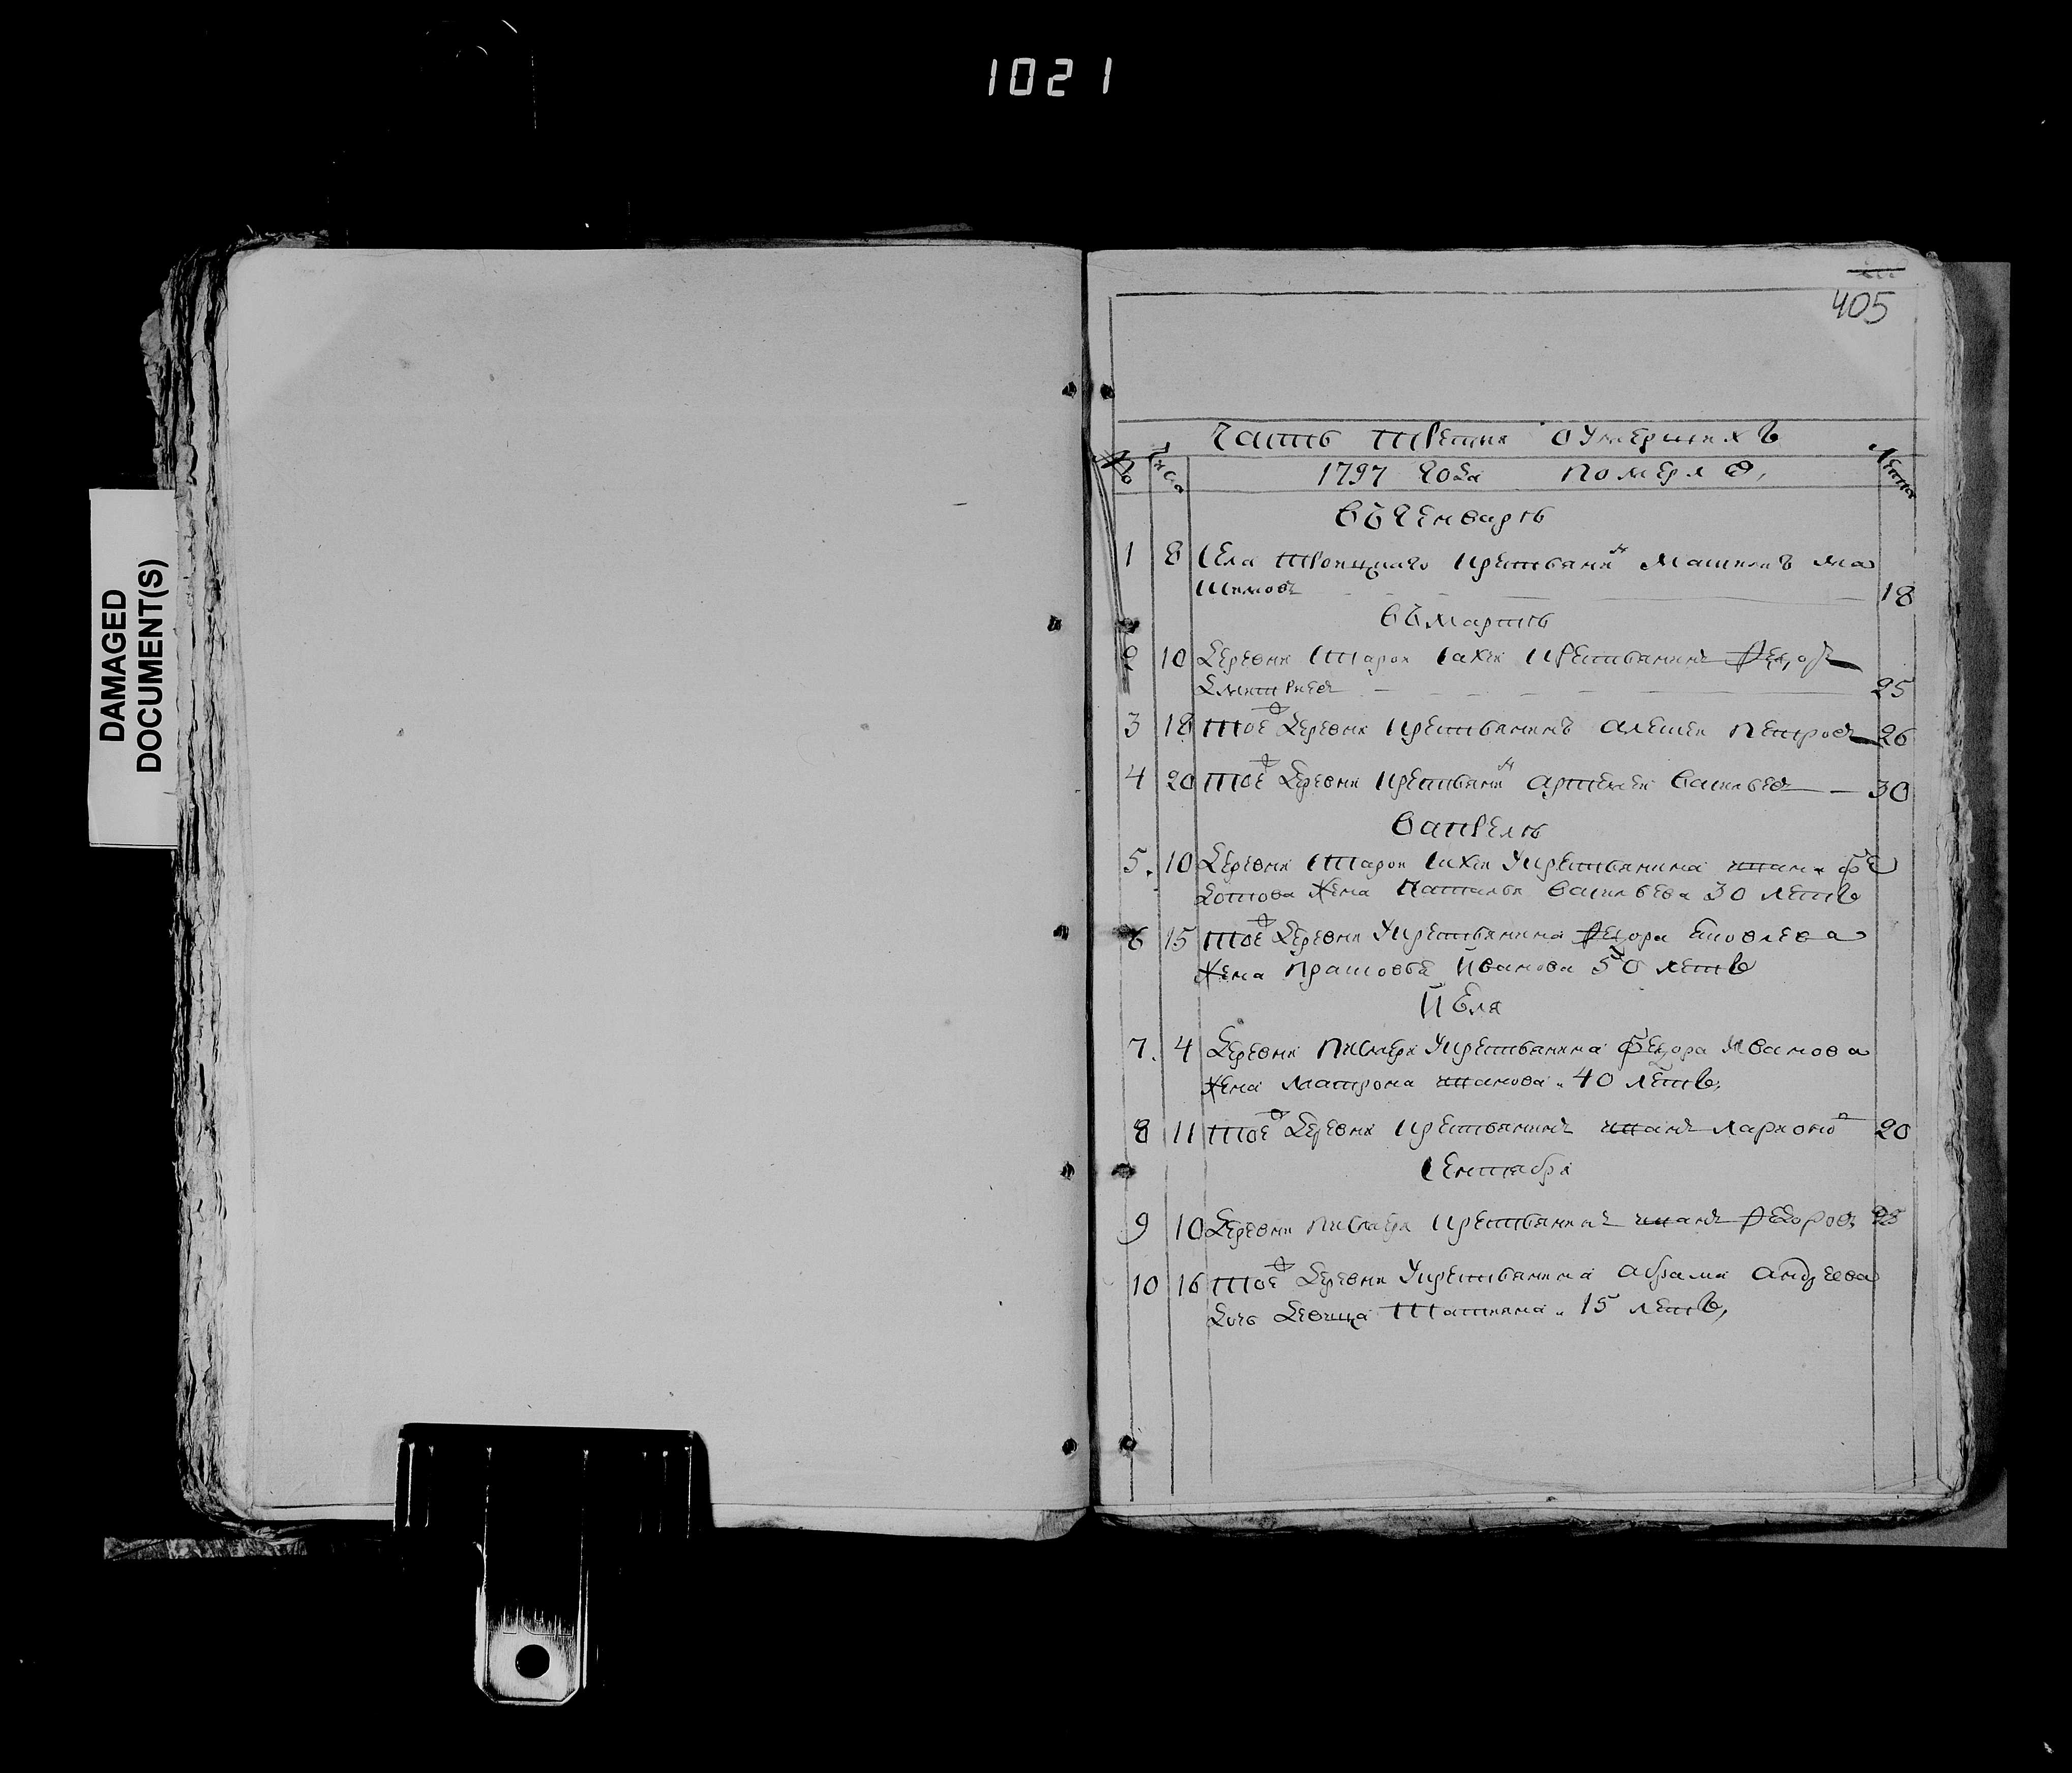 1021
DAMAGED
DOCUMENT(S)
405
Часть третия оумершихъ
№ Числа 1797 года померло Лета
въ генварѣ
1 8 Села Троицкаго крестьянинъ Ма
18
въ мартѣ
2 10 деревни Старой крестьянинъ Федоръ
Дмитриевъ 25
3 18 тоеж деревни крестьянинъ Алексей Петровъ 26
4 20 тоеж деревни крестьянинъ Артемей Васильевъ 30
въ апрелѣ
5. 10 деревни Старой укрестьянина Ивана Фе
дотова жена Наталья Васильева 30 летъ
6 15 тоеж деревни укрестьянина Федора Яковлева
жена Прасковья Иванова 50 летъ
Июля
7. 4 деревни укрестьянина Федора Иванова
жена Матрона 40 летъ,
8 11 тоеж деревни крестьянинъ Иванъ Ларионовъ 20
Сентября
9 10 деревни крестьянинъ Иванъ Федоровъ
10 16 тоеж деревни укрестьянина Абрама Андреева
дочь девица Татияна 15 летъ,